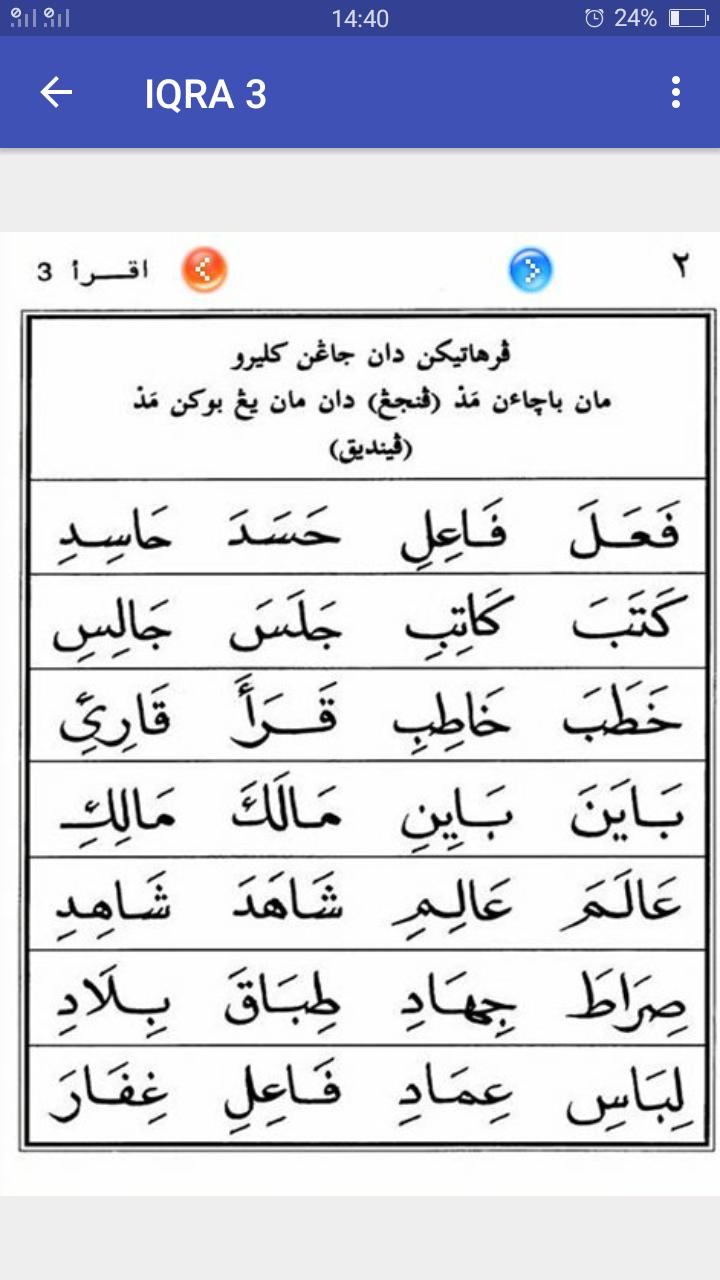 14:40 24%
IQRA 3
اقـــرأ 3 ٢
ڤرهاتيكن دان جاڠن كليرو
مان باچاءن مَدْ (ڤنجڠ) دان مان يڠ بوكن مَدْ
(ڤينديق)
فَعَلَ فَاعِلِ حَسَدَ حَاسِدِ
كَتَبَ كَاتِبِ جَلَسَ جَالِسِ
خَطَبَ خَاطِبِ قَـــرَأَ قَارِئِ
بَايَنَ بَايِنِ مَالَكَ مَالِكِ
عَالَمَ عَالِمِ شَاهَدَ شَاهِدِ
صِرَاطَ جِهَادِ طِبَاقَ بِلَادِ
لِبَاسِ عِمَادِ فَاعِلِ غِفَارَ